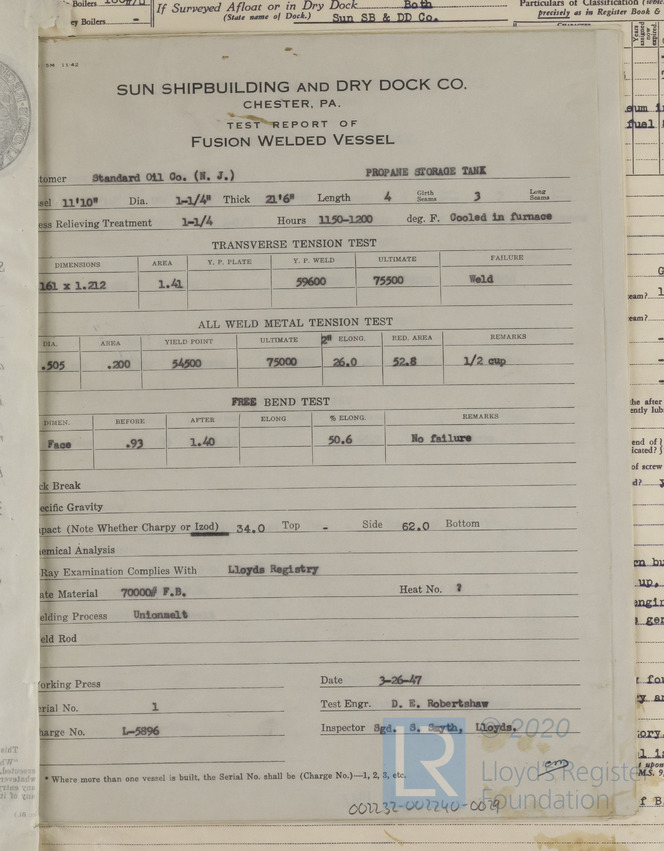 Boilers
If Surveyed Afloat or in Dry Dock Both
(State name of Dock.) Sun SB & DD Co.
Particulars of Classification
precisely as in Register Book &
ey Boilers -
SM 11-42
SUN SHIPBUILDING AND DRY DOCK CO.
CHESTER, PA.
TEST REPORT OF
FUSION WELDED VESSEL
tomer Standard Oil Co. (N. J.) PROPANE STORAGE TANK
sel 11'10" Dia. 1-1/4" Thick 21'6" Length 4 Girth Seams 3 Long Seams
ess Relieving Treatment 1-1/4 Hours 1150-1200 deg. F. Cooled in furnace
TRANSVERSE TENSION TEST
DIMENSIONS AREA Y. P. PLATE Y. P. WELD ULTIMATE FAILURE
161 x 1.212 1.41 59600 75500 Weld
ALL WELD METAL TENSION TEST
DIA. AREA YIELD POINT ULTIMATE 2" ELONG. RED. AREA REMARKS
.505 .200 54500 75000 26.0 52.8 1/2 cup
FREE BEND TEST
DIMEN. BEFORE AFTER ELONG % ELONG. REMARKS
Face .93 1.40 50.6 No failure
ck Break
ecific Gravity
pact (Note Whether Charpy or Izod) 34.0 Top - Side 62.0 Bottom
emical Analysis
Ray Examination Complies With Lloyds Registry
ate Material 70000# F.B. Heat No. ?
elding Process Unionmelt
eld Rod
orking Press Date 3-26-47
erial No. 1 Test Engr. D. E. Robertshaw
harge No. L-5896 Inspector Sgd. S. Smyth, Lloyds.
* Where more than one vessel is built, the Serial No. shall be (Charge No.)—1, 2, 3, etc.
002232-002240-0029
© 2020
LR
Lloyd's Register
Foundation